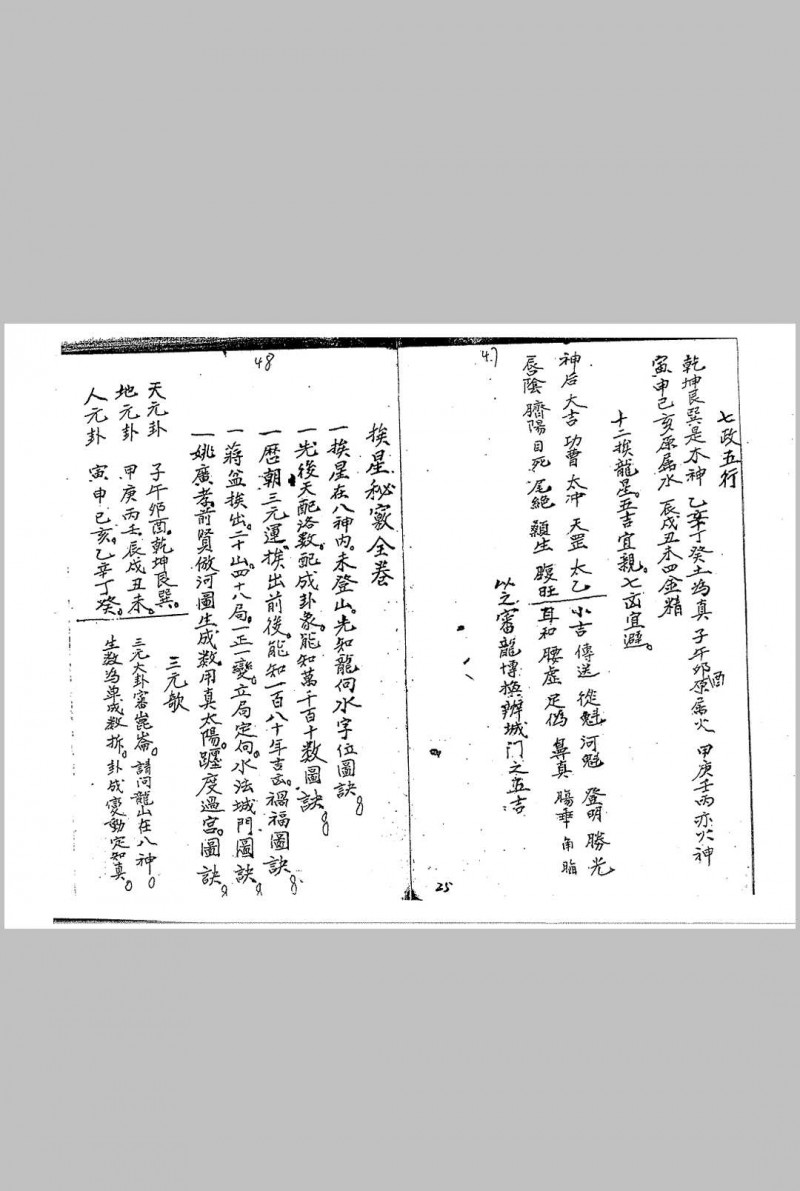 47
七政五行
乾坤艮巽是木神 乙辛丁癸土為真 子午卯酉原属火 甲庚壬丙亦火神
寅申巳亥原属水 辰戌丑未四金精
十二挨龍星。五吉宜親。七凶宜避。
神后 大吉 功曹 太冲 天罡 太乙 小吉 傳送 從魁 河魁 登明 勝光
唇陰 臍陽 目死 尾絶 顙生 腹旺 耳和 腰虛 足偽 鼻真 腸乖 角
以之審龍博換辦城门之五吉
25
48
挨星秘竅全卷
一挨星在八神内。未登山。先知龍向水字位圖訣。
一先後天配洛数。配成卦象。能知萬千百十數圖訣。
一歷朝三元運。挨出前後。能知一百八十年吉凶。禍福圖訣。
一蔣盆挨出。二十山四十八局。一正一變。立局定向。水法城門圖訣。
一姚廣孝前賢做河圖生成数。用真太陽。躔度過宮。圖訣。
三元歌
天元卦 子午卯酉。乾坤艮巽。
地元卦 甲庚丙壬。辰戌丑未。
人元卦 寅申巳亥。乙辛丁癸。
三元大卦審崑崙。請问龍山在八神。
生数為单成数拆。卦成变動定知真。